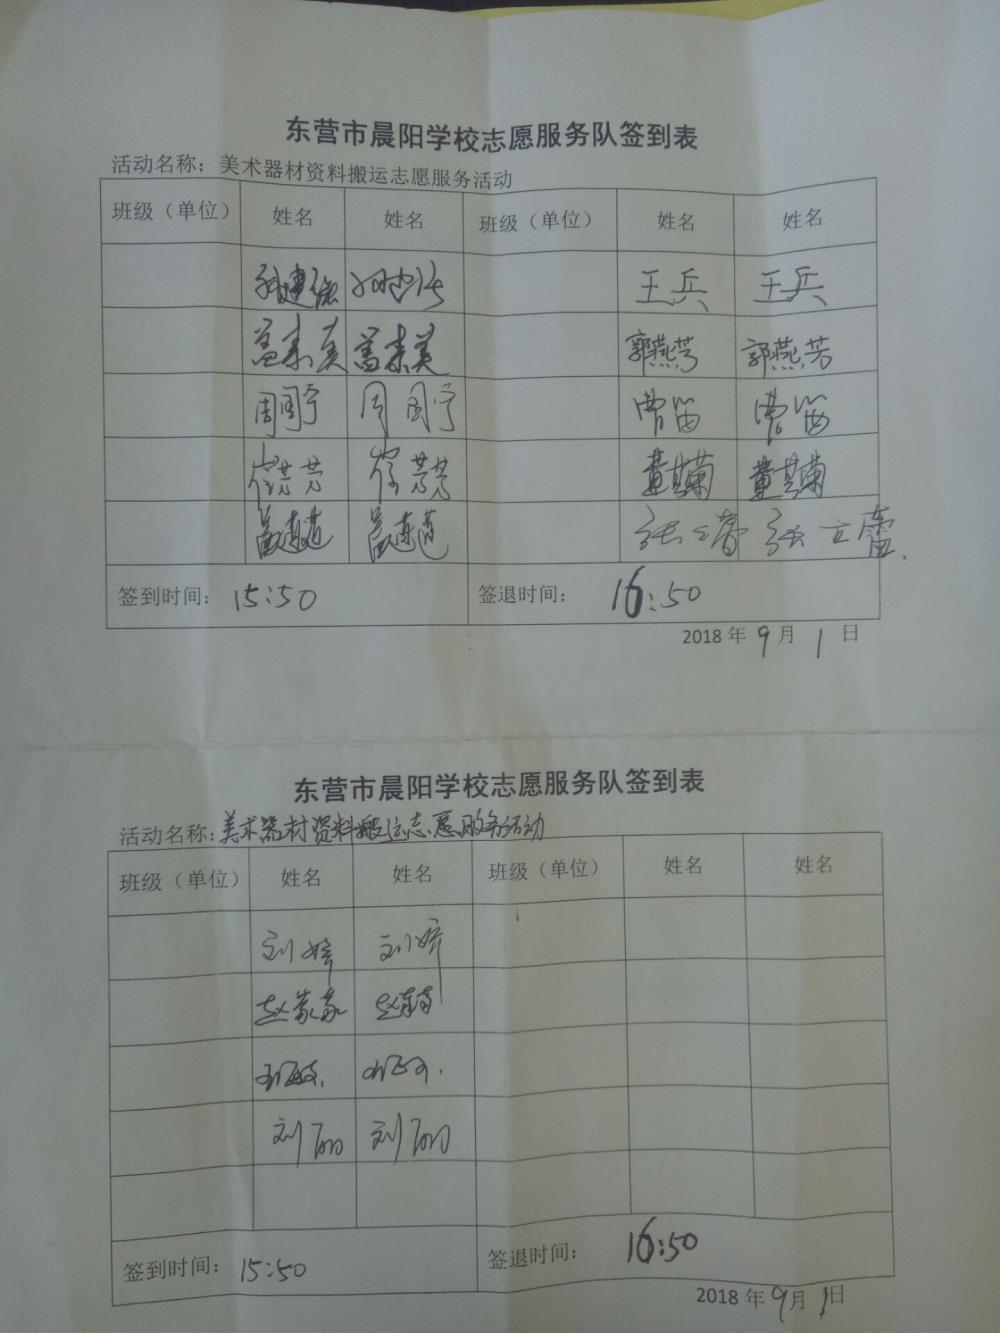 东营市晨阳学校志愿服务队签到表
活动名称：美术器材资料搬运志愿服务活动
班级（单位） 姓名 姓名 班级（单位） 姓名 姓名
王兵 王兵
郭燕芳 郭燕芳
周国宁 周国宁 曹笛 曹笛
崔芳芳 崔芳芳 董其菊 董其菊
张立蕾 张立蕾.
签到时间： 15:50 签退时间： 16:50
2018年9月1日
东营市晨阳学校志愿服务队签到表
活动名称：美术器材资料搬运志愿服务活动
班级（单位） 姓名 姓名 班级（单位） 姓名 姓名
刘婷 刘婷
赵
刘丽 刘丽
签到时间： 15:50 签退时间： 16:50
2018年9月1日